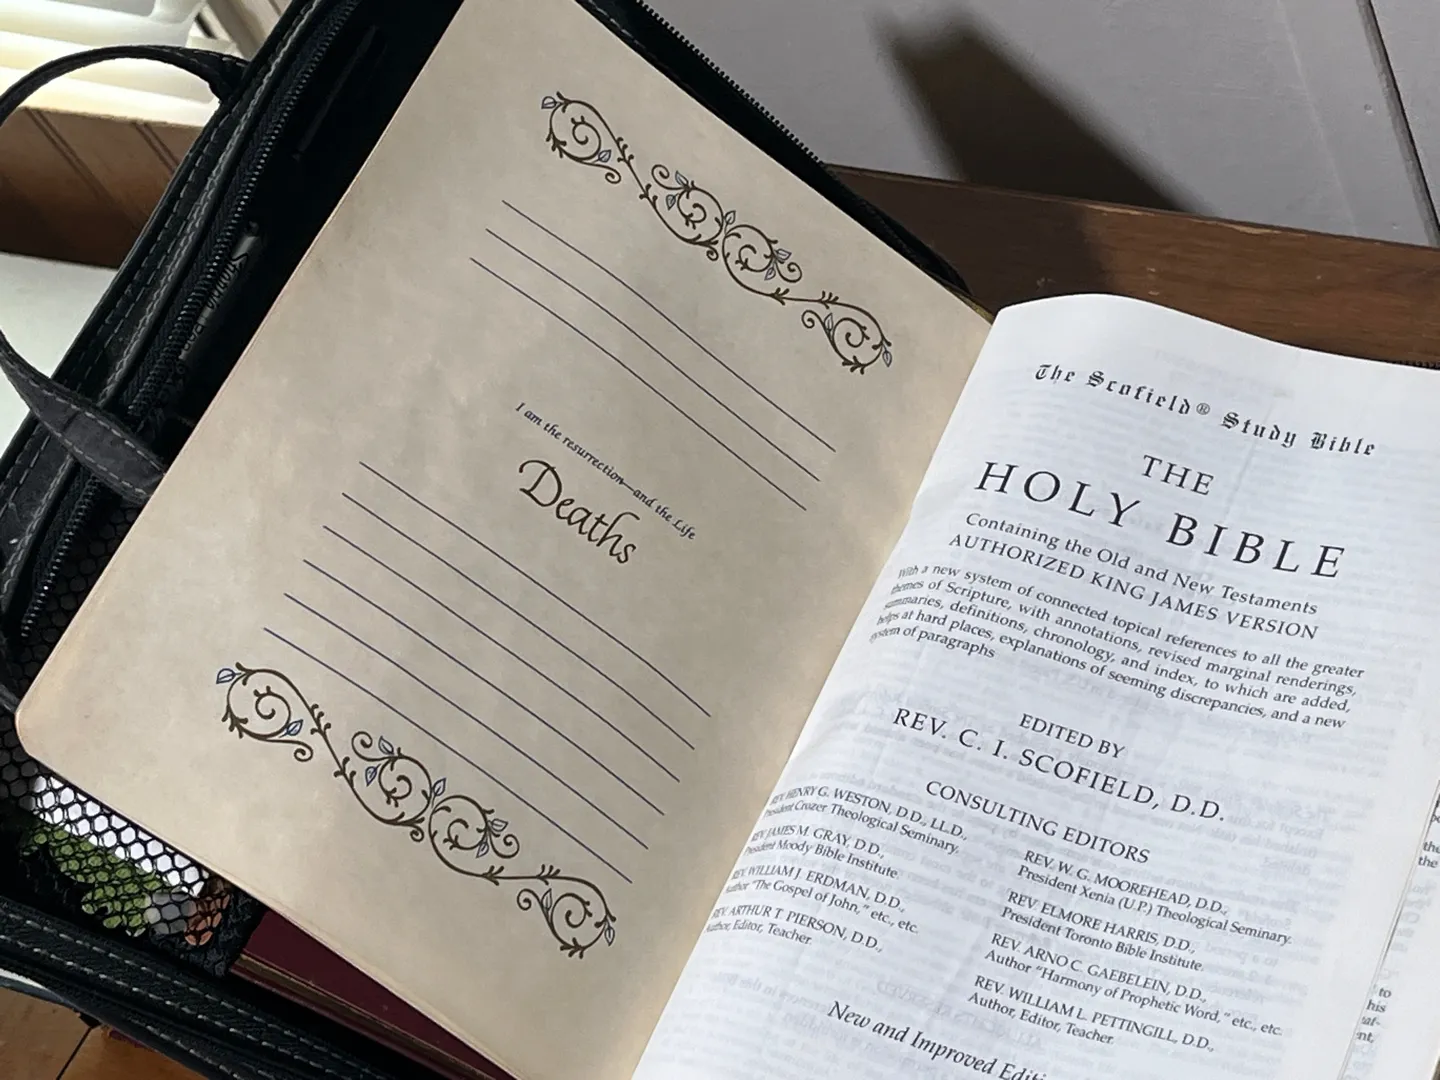 I am the resurrection—and the Life
Deaths
The Scofield® Study Bible
THE
HOLY BIBLE
Containing the Old and New Testaments
AUTHORIZED KING JAMES VERSION
With a new system of connected topical references to all the greater
themes of Scripture, with annotations, revised marginal renderings,
summaries, definitions, chronology, and index, to which are added,
helps at hard places, explanations of seeming discrepancies, and a new
system of paragraphs
EDITED BY
REV. C. I. SCOFIELD, D.D.
CONSULTING EDITORS
REV. HENRY G. WESTON, D.D., LL.D.,
President Crozer Theological Seminary.
REV. JAMES M. GRAY, D.D.,
President Moody Bible Institute.
REV. WILLIAM J. ERDMAN, D.D.,
Author "The Gospel of John," etc., etc.
REV. ARTHUR T. PIERSON, D.D.,
Author, Editor, Teacher.
REV. W. G. MOOREHEAD, D.D.,
President Xenia (U.P.) Theological Seminary.
REV. ELMORE HARRIS, D.D.,
President Toronto Bible Institute.
REV. ARNO C. GAEBELEIN, D.D.,
Author "Harmony of Prophetic Word," etc., etc.
REV. WILLIAM L. PETTINGILL, D.D.,
Author, Editor, Teacher.
New and Improved
the
to
his